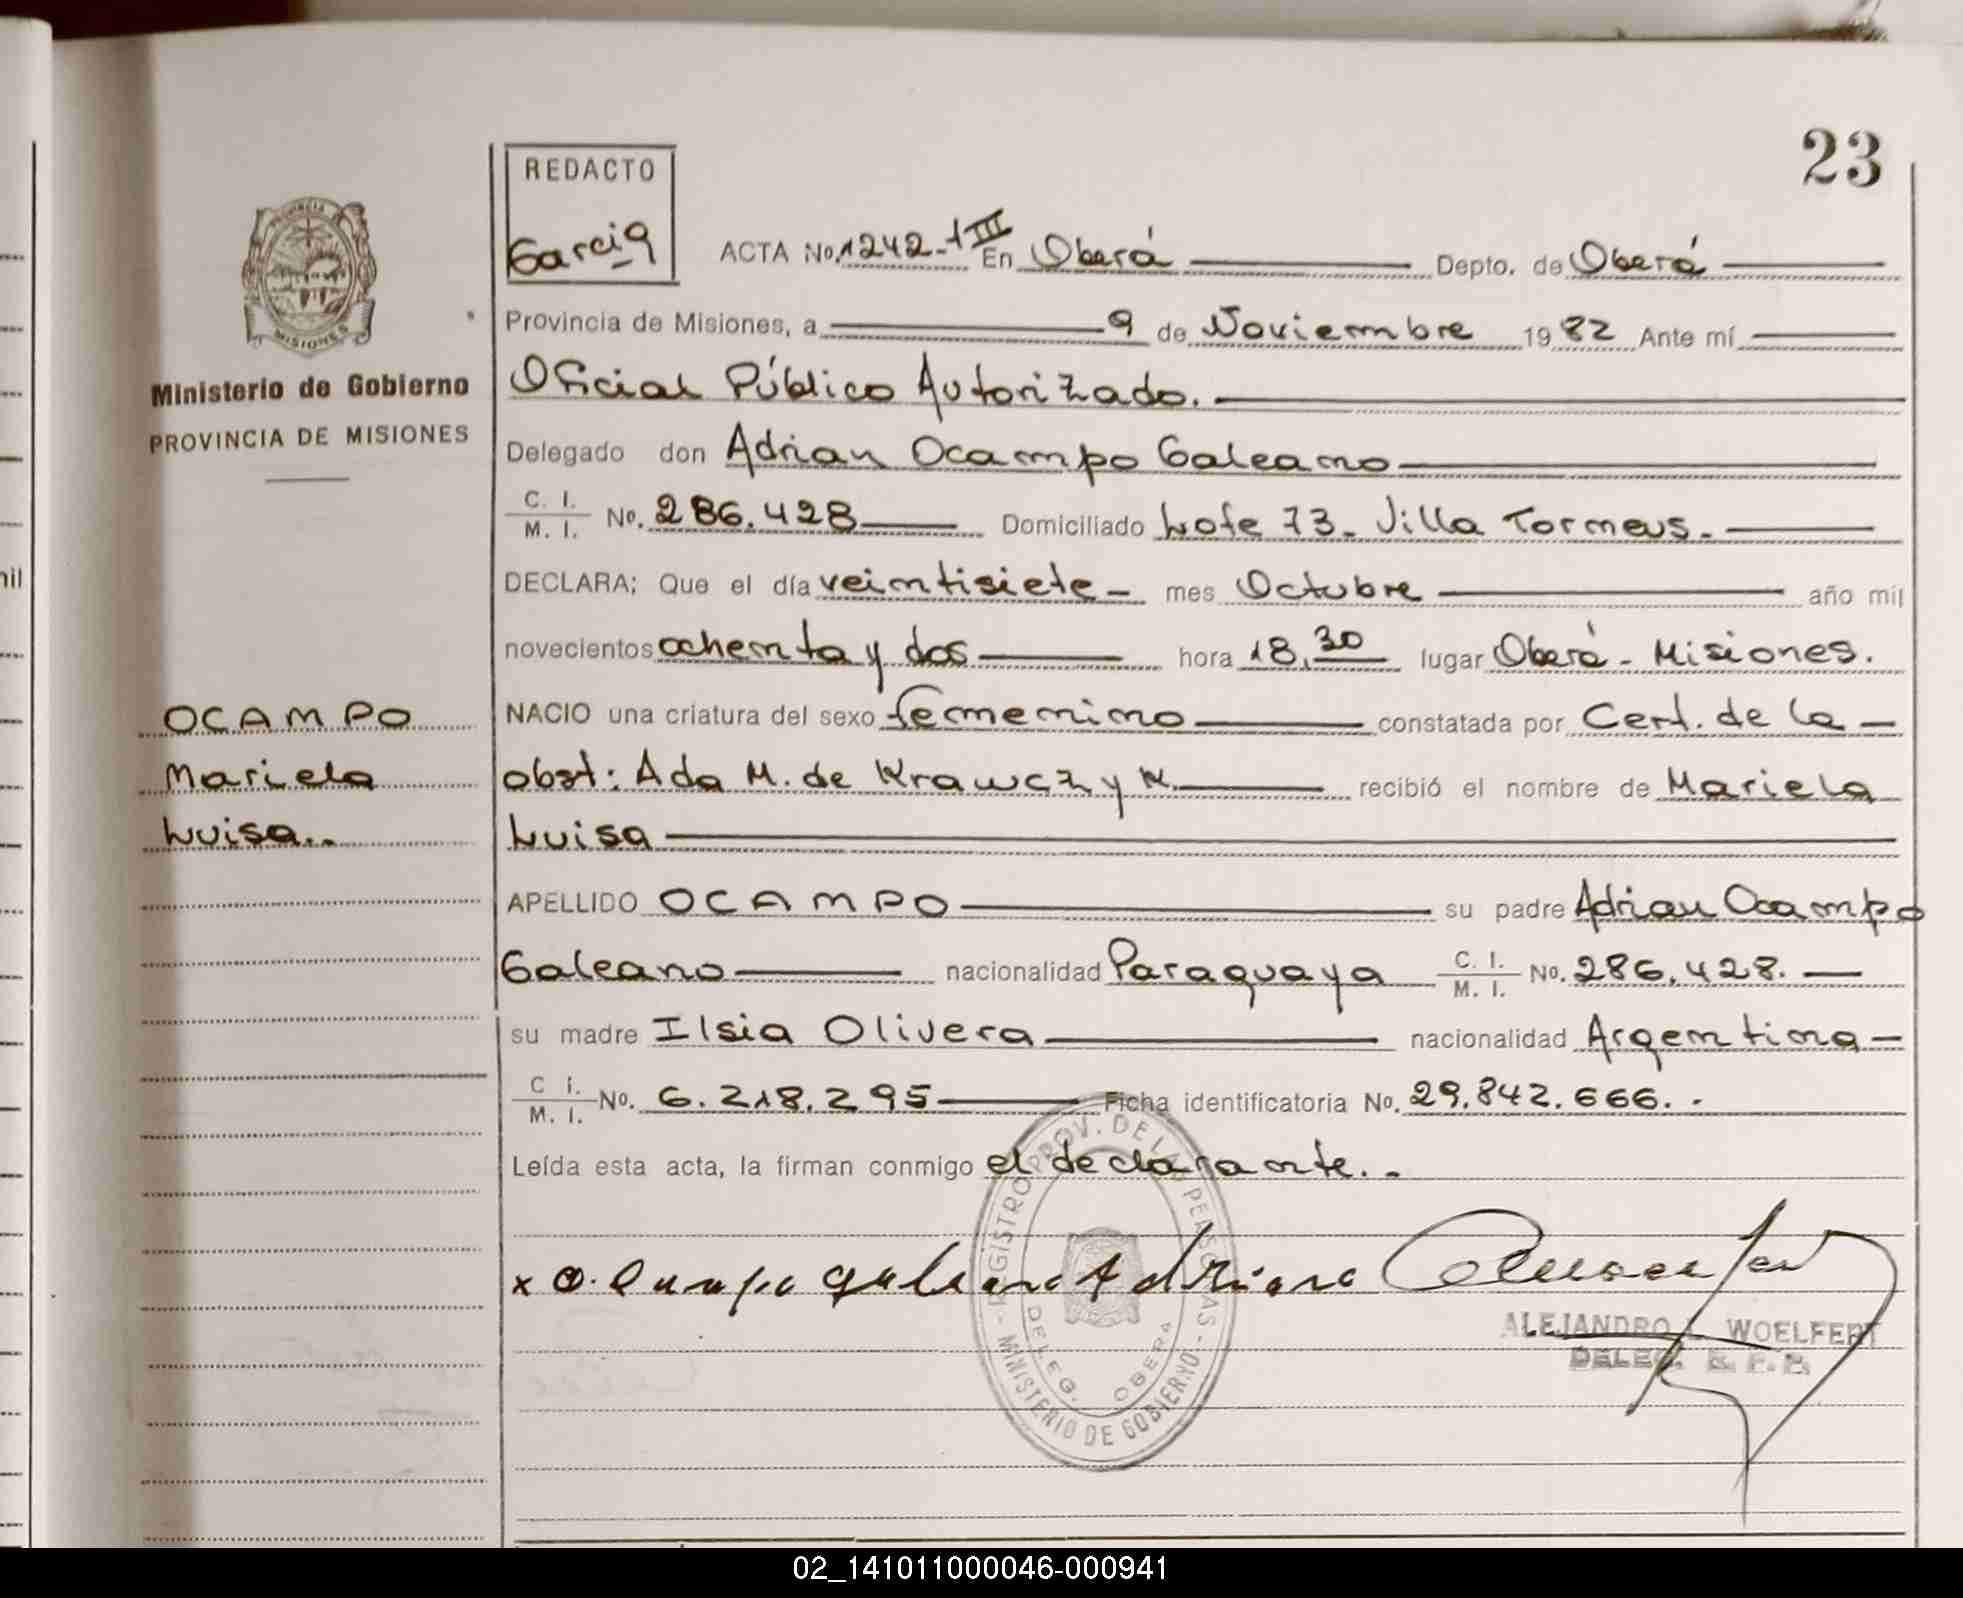 23
REDACTO
Garcia
ACTA No. 1242-1 III En Oberá Depto. de Oberá
PROVINCIA
MISIONES
Ministerio de Gobierno
PROVINCIA DE MISIONES
Provincia de Misiones, a 9 de Noviembre 1982 Ante mí
Oficial Público Autorizado.
Delegado don Adrian Ocampo Galeano
C. I. / M. I. No. 286.428 Domiciliado Lote 73 - Villa Tormeus.-
DECLARA; Que el día veintisiete - mes Octubre año mil
novecientos ochenta y dos hora 18,30 lugar Oberá - Misiones.
OCAMPO
Mariela
Luisa..
NACIO una criatura del sexo femenino constatada por Cert. de la -
obst: Ada M. de Krawczyk recibió el nombre de Mariela
Luisa
APELLIDO OCAMPO su padre Adrian Ocampo
Galeano nacionalidad Paraguaya C. I. / M. I. No. 286.428. -
su madre Ilsia Olivera nacionalidad Argentina -
C i. / M. I. No. 6.218.295 Ficha identificatoria No. 29.842.666. -
Leída esta acta, la firman conmigo el declarante. -
REGISTRO PROV. DE LAS PERSONAS - MINISTERIO DE GOBIERNO -
DELEG. OBERA
x O. Ocampo galeano Adriano
ALEJANDRO WOELFERT
DELEG. R. P. P.
nil
02_141011000046-000941